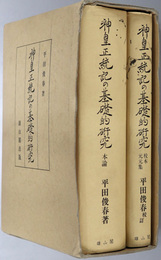 平田俊春著
神皇正統記の基礎的研究
雄山閣出版
神皇正統記の基礎的研究
本論
平田俊春著
雄山閣
神皇正統記の基礎的研究
平田俊春校訂
雄山閣